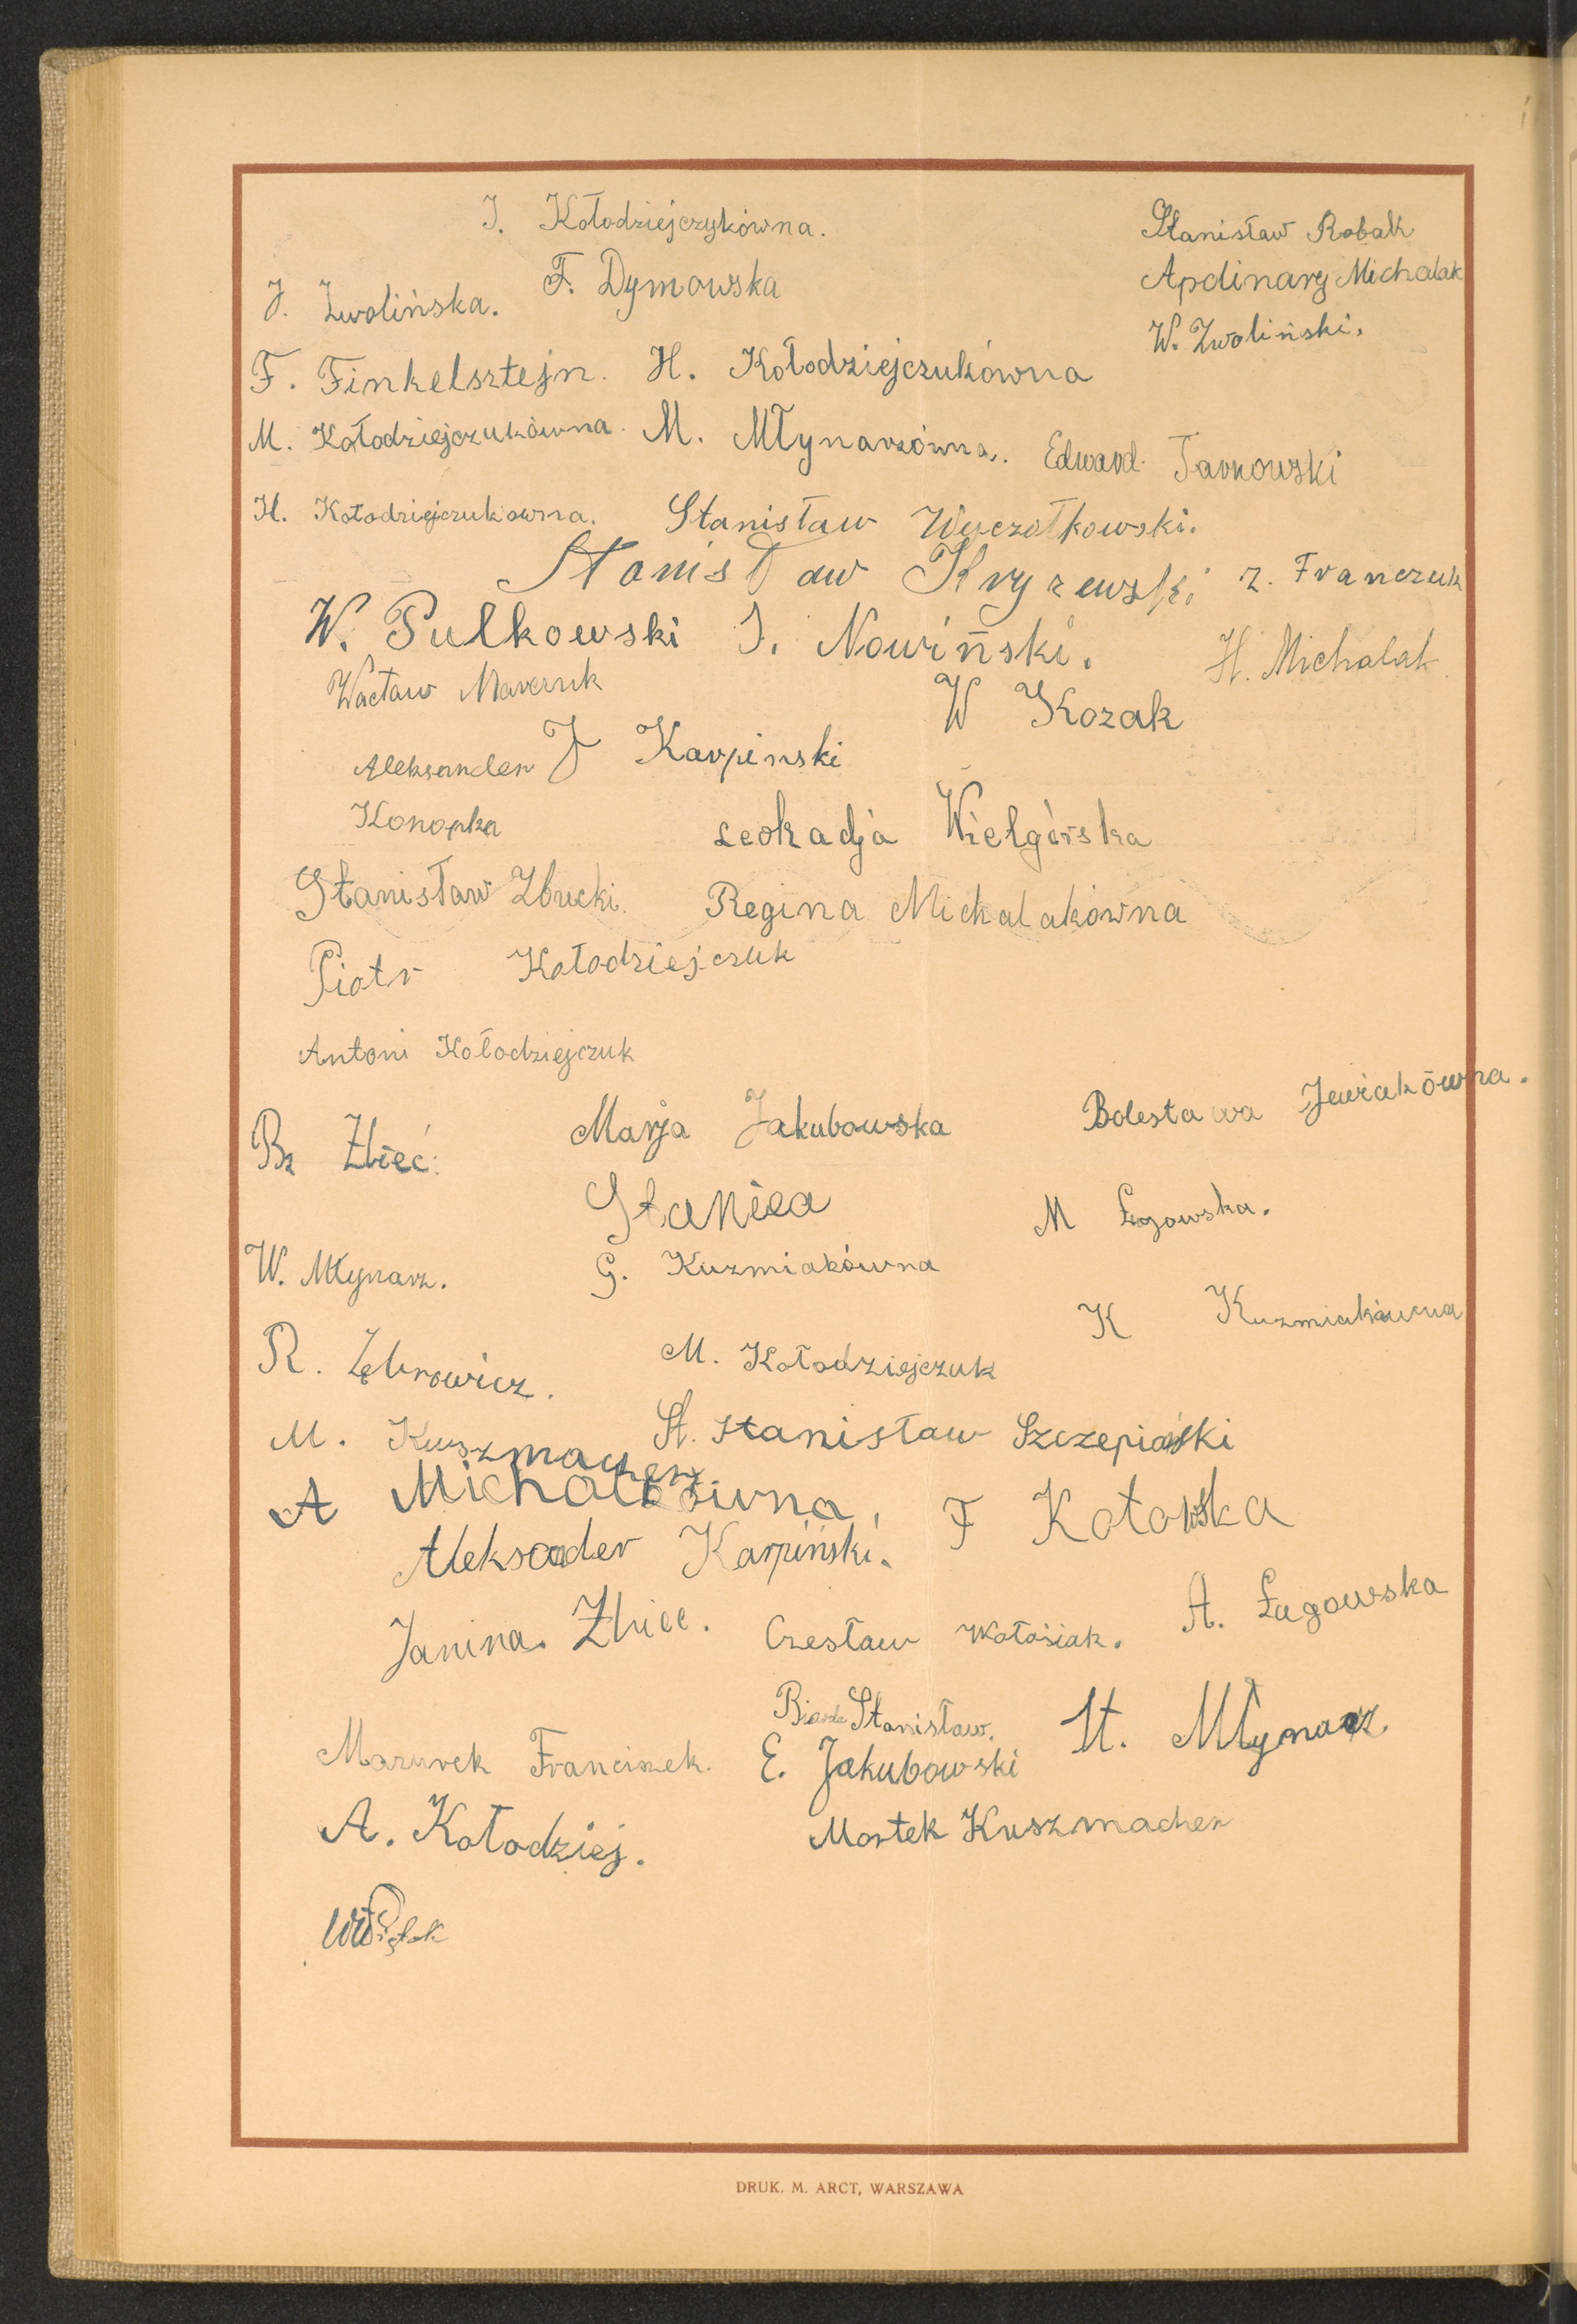 J. Kołodziejczykówna.
Stanisław Robak
J. Zwolińska.
F. Dymowska
Apolinary Michalak
W. Zwoliński.
F. Finkelsztejn. H. Kołodziejczukówna
M. Kołodziejczukówna. M. Młynarzówna. Edward Tarkowski
H. Kołodziejczukowna. Stanisław Wyczołkowski.
Stanisław Kryzewski Z. Franczuk
W. Pulkowski J. Nowiński. H. Michalak.
Wacław Marczuk
W Kozak
Aleksander
J Karpinski
Konopka
Leokadja Wielgórska
Stanisław Zbucki. Regina Michalakówna
Piotr Kołodziejczuk
Antoni Kołodziejczuk
Br Zbieć.
Marja Jakubowska
Bolesława Jewiakówna.
Stanica
M Łęgowska.
W. Młynarz.
G. Kuzmiakówna
K Kuzmiakówna
R. Zębrowicz.
M. Kołodziejczuk
M. Kuszmacher
St. Stanisław Szczepiański
A Michalakówna,
F Kotowska
Aleksander Karpiński.
Janina Zbiec. Czesław Wołosiak. A. Ługowska
Stanisław.
St. Młynarz
Mazurek Franciszek. E. Jakubowski
A. Kołodziej.
Mortek Kuszmacher
DRUK. M. ARCT, WARSZAWA